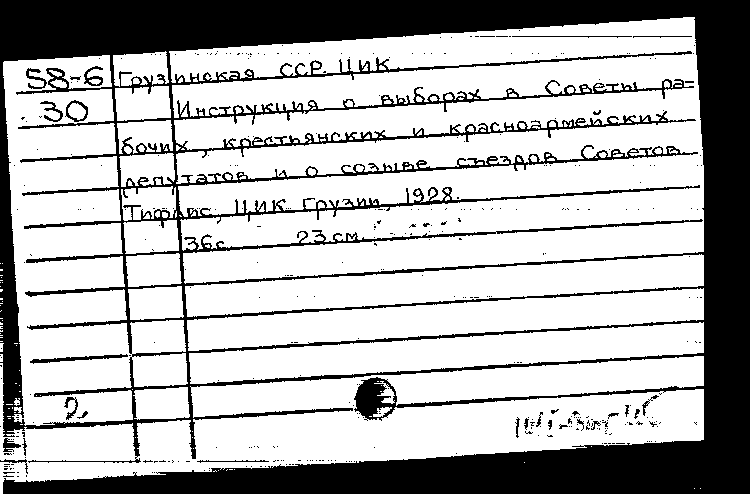 58-6 Грузинская ССР. ЦИК.
30 Инструкция о выборах в Советы ра=
бочих, крестьянских и красноармейских
депутатов и о созыве съездов Советов.
Тифлис, ЦИК Грузии, 1928.
36с. 23см.
2